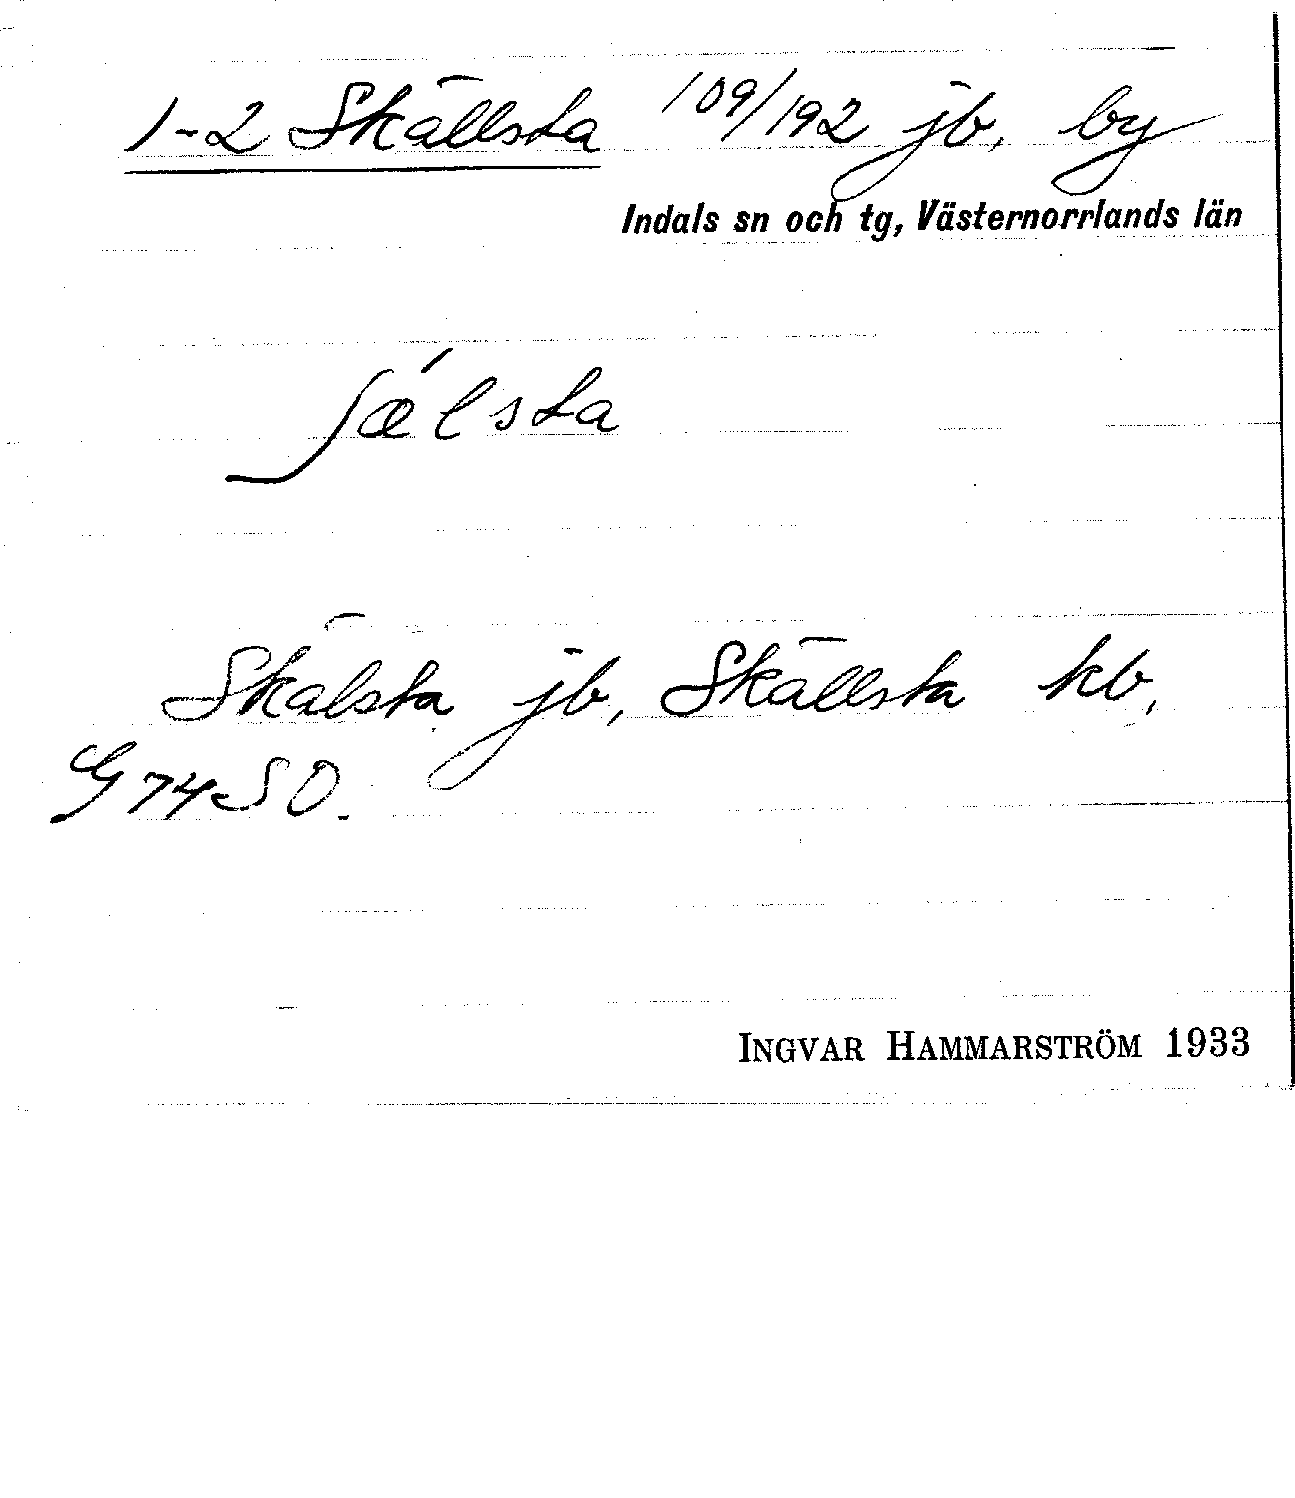 1-2 Skällsta 109/192 jb, by
Indals sn och tg, Västernorrlands län
ʃǽlsta
Skälsta jb, Skällsta kb,
G 74 SO.
INGVAR HAMMARSTRÖM 1933